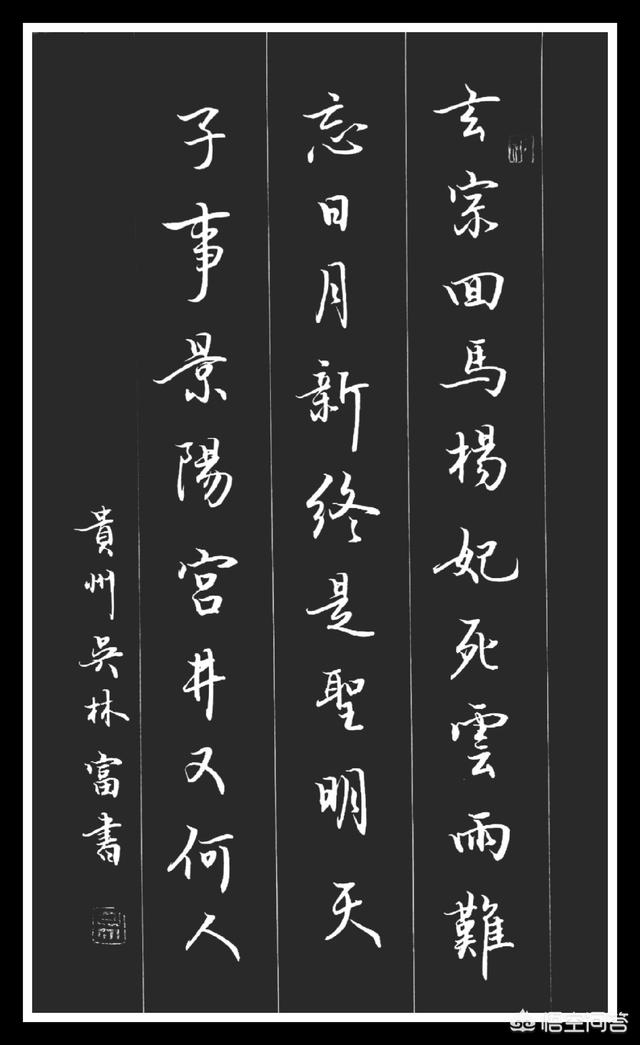 玄宗回馬楊妃死雲雨難
忘日月新終是聖明天
子事景陽宮井又何人
貴州吳林富書
悟空问答